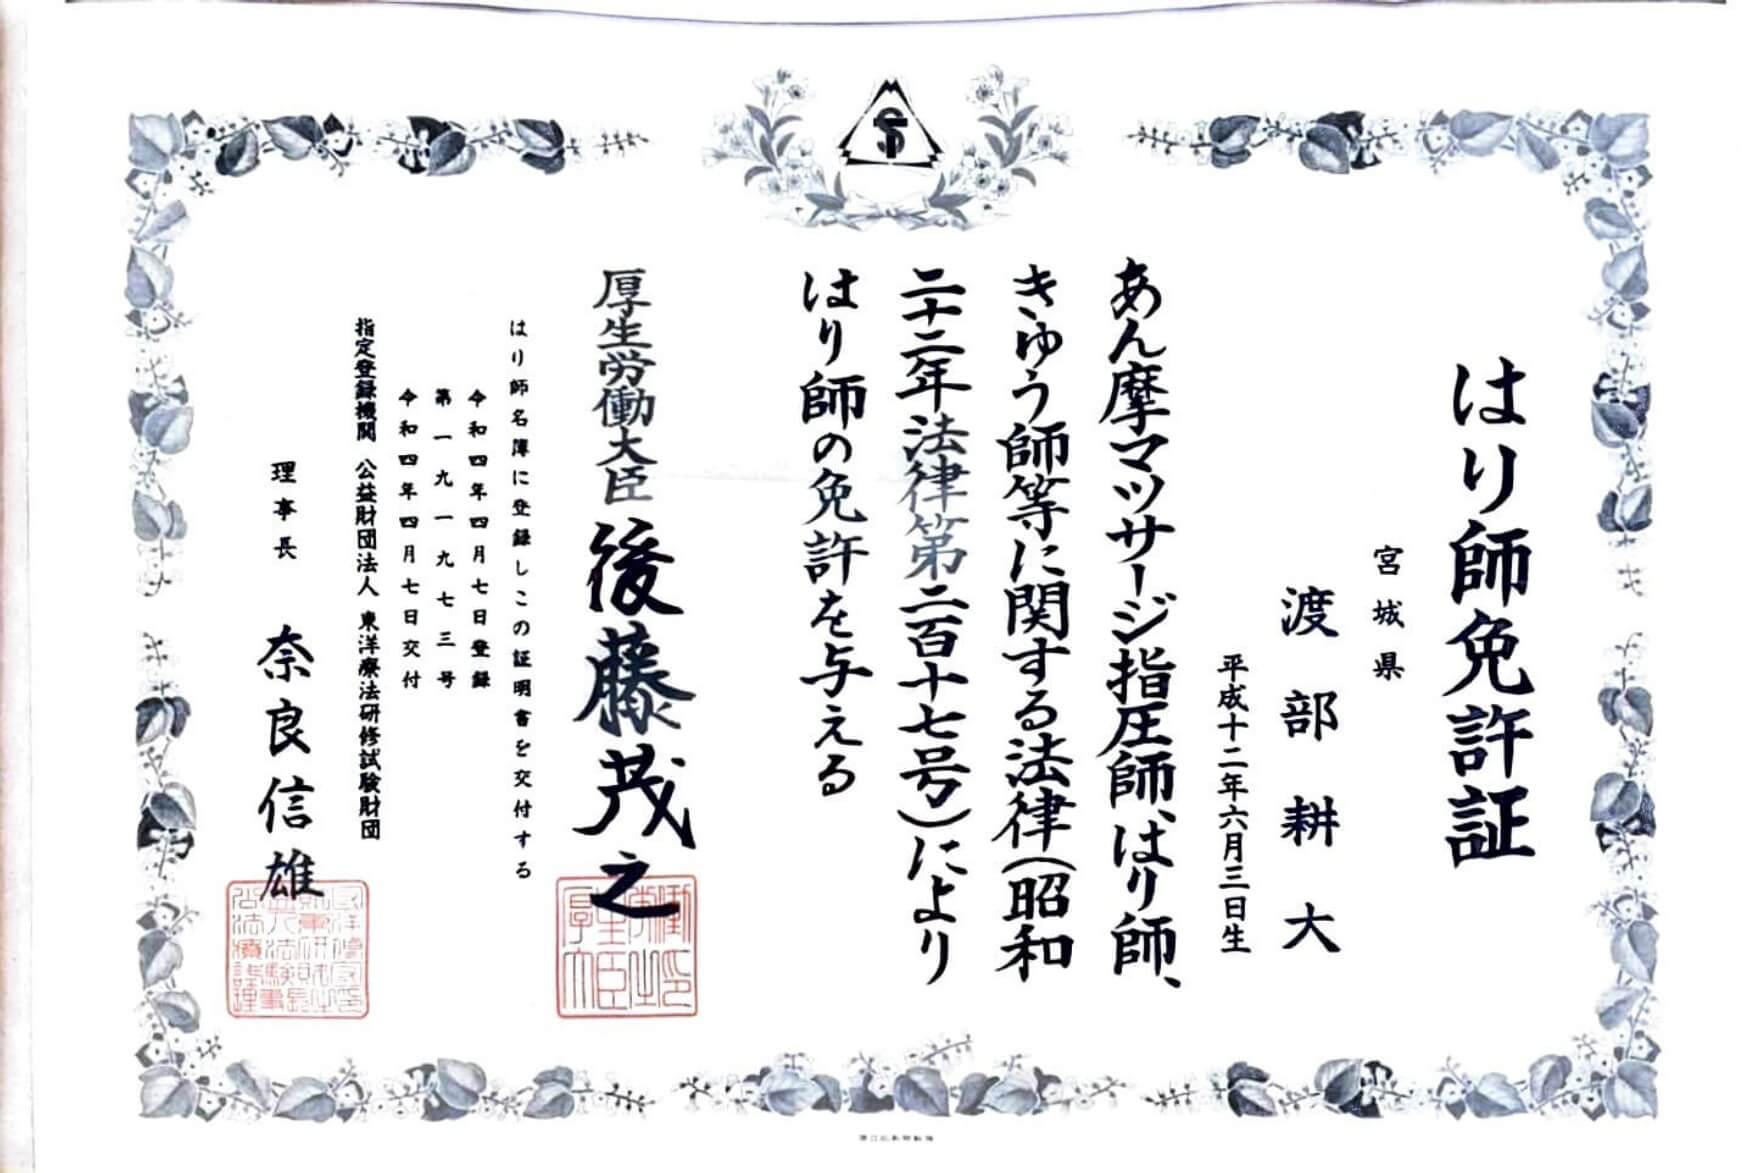 はり師免許証
宮城県
渡部耕大
平成十二年六月三日生
あん摩マッサージ指圧師、はり師、
きゆう師等に関する法律(昭和
二十二年法律第二百十七号)により
はり師の免許を与える
厚生労働大臣 後藤茂之
はり師名簿に登録しこの証明書を交付する
令和四年四月七日登録
第一九一九七三号
令和四年四月七日交付
指定登録機関 公益財団法人 東洋療法研修試験財団
理事長 奈良信雄